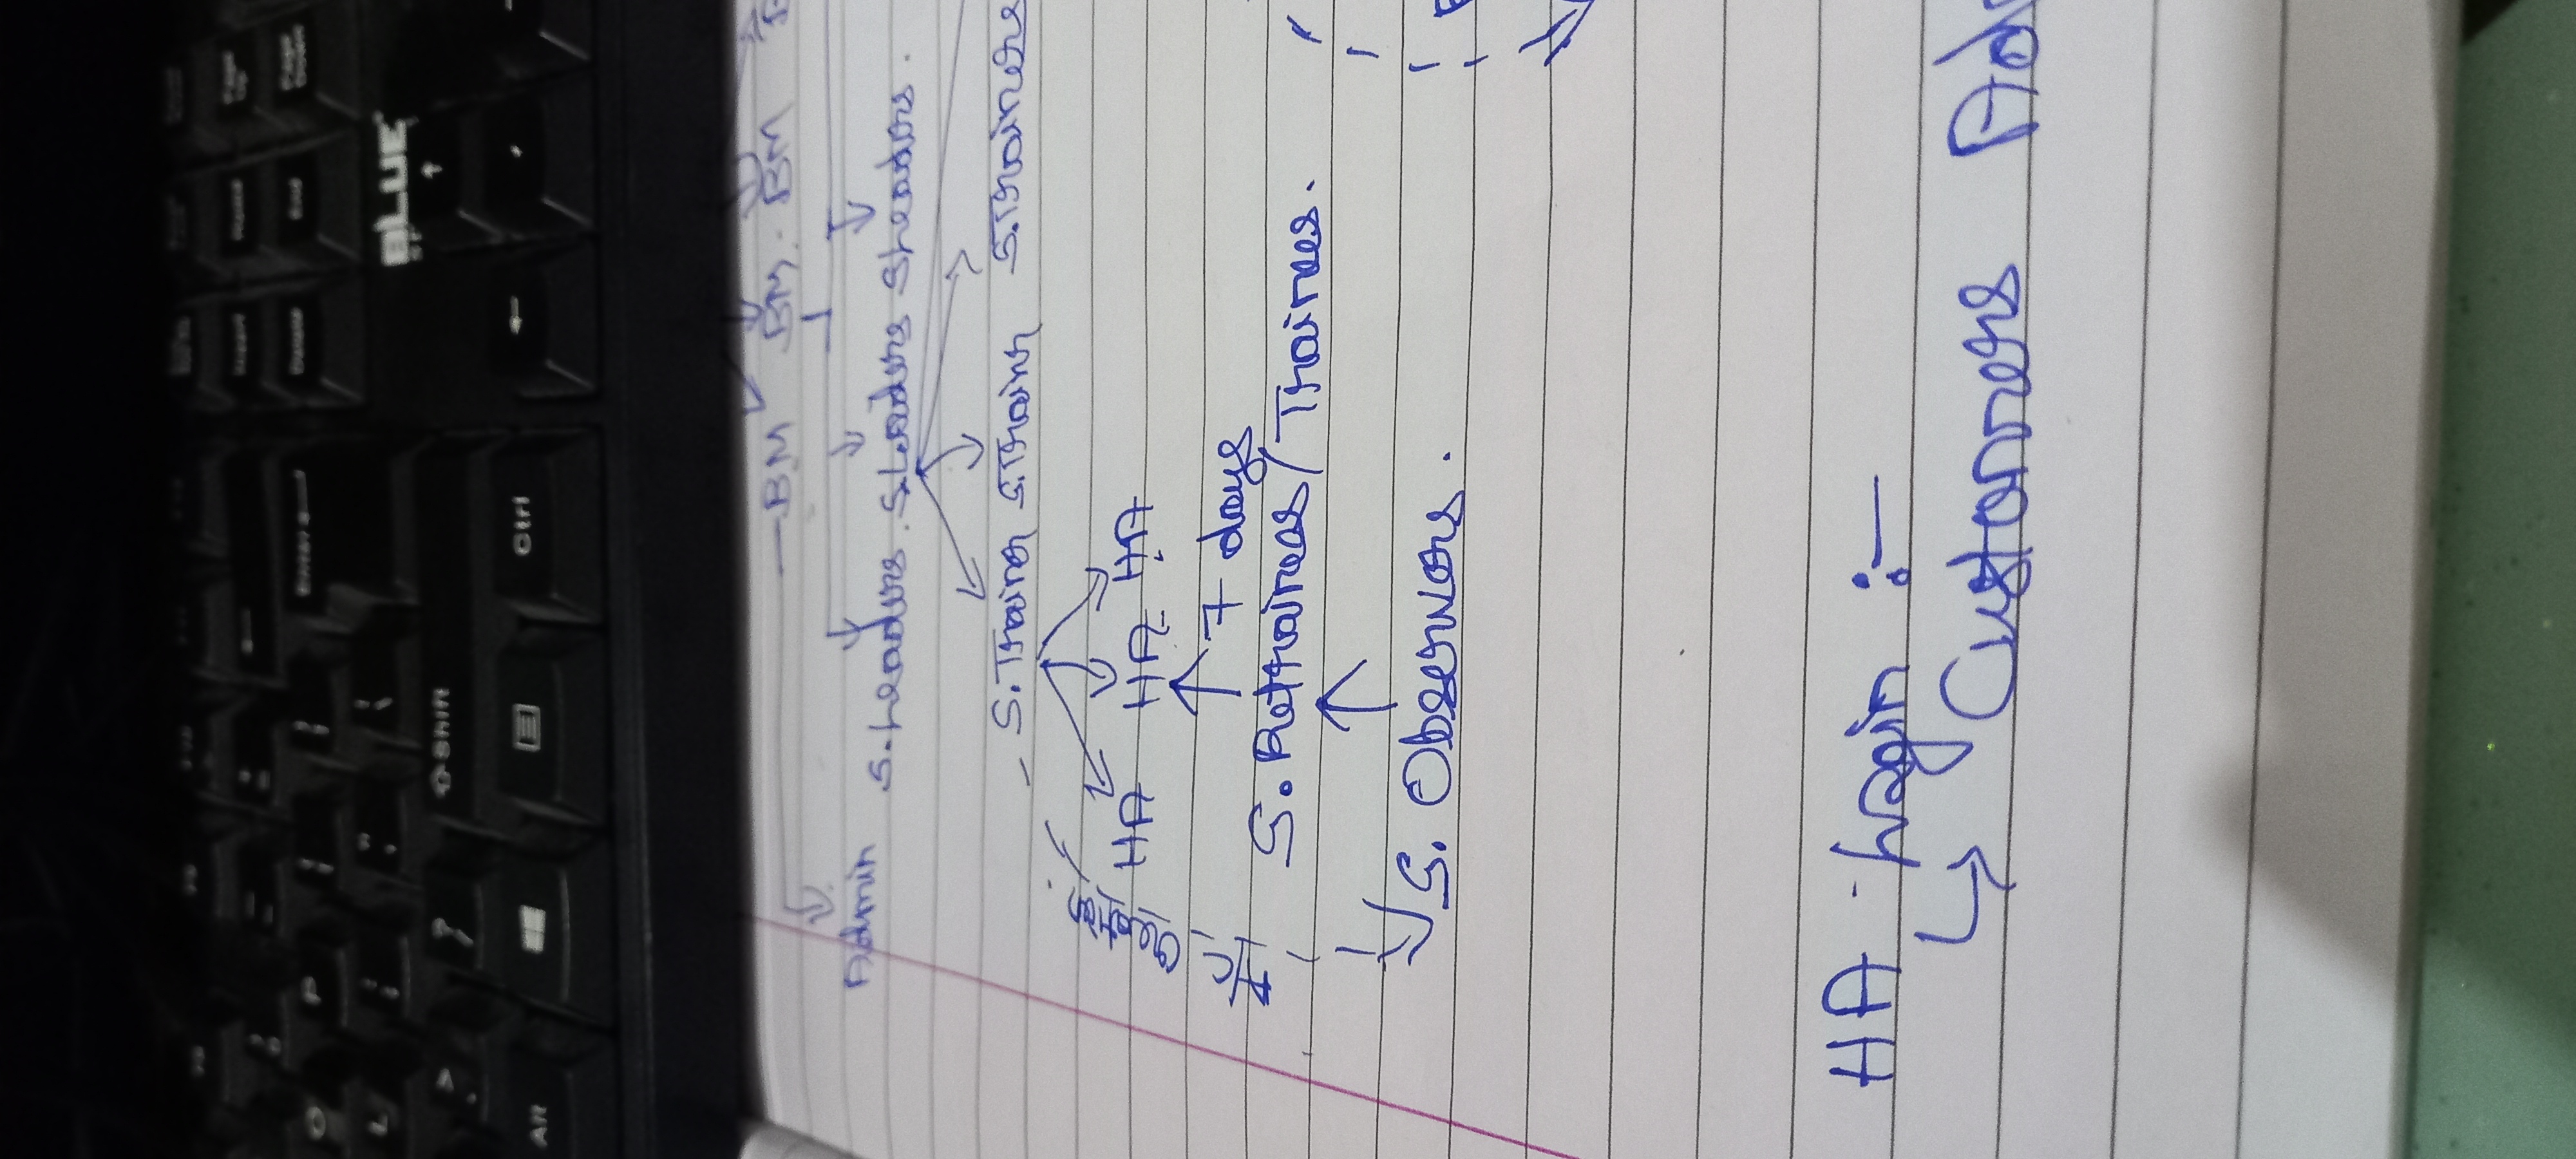 P
Insert Home Page Up
Enter
Delete End Page Down
L
BLUE
Shift
Alt Ctrl
BM BM. BM
Admin
S.Leaders. S.Leaders SLeaders.
S.Trainer S.Trainr S.Trainers
A/C Creation
HA HA HA
7 days
S. Retrainees/Trainees.
S. Observors.
HA -Login :-
Customers